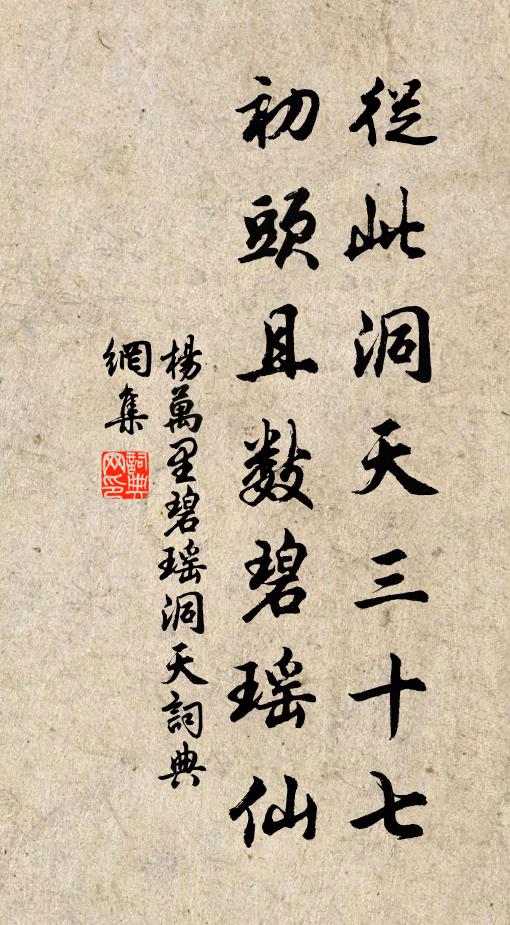 從此洞天三十七
初頭且數碧瑤仙
楊萬里碧瑤洞天詞典
網集
詞典
网印